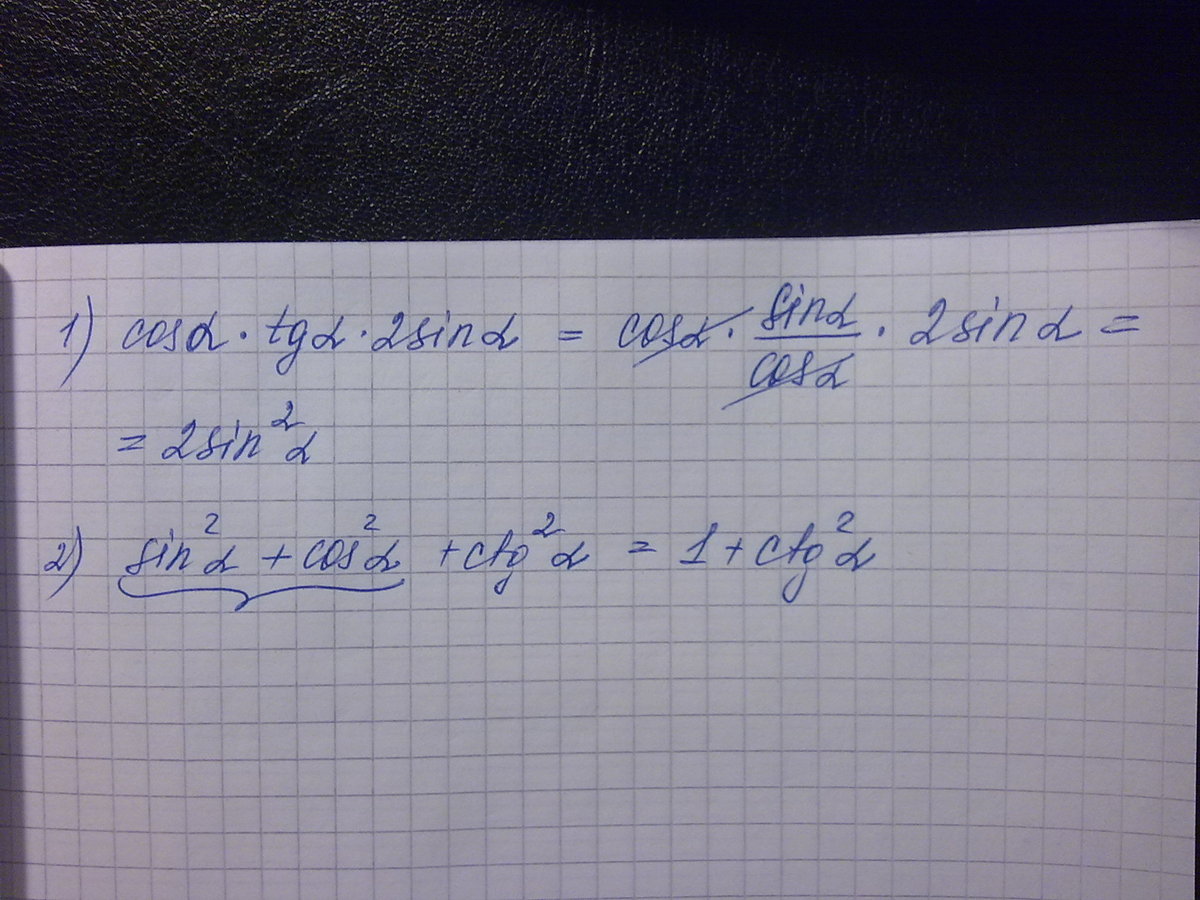 1) cosα · tgα · 2sinα = cosα · sinα/cosα · 2sinα =
= 2sin²α
2) sin²α + cos²α + ctg²α = 1 + ctg²α